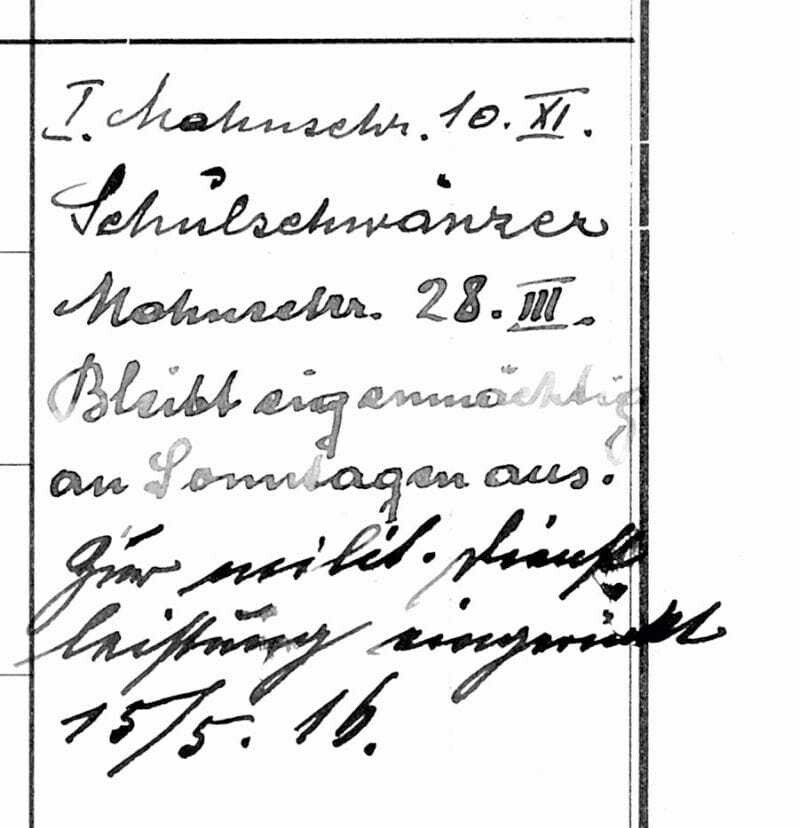 I. Mahnschr. 10. XI.
Schulschwänzer
Mahnschr. 28. III.
Bleibt eigenmächtig
an Sonntagen aus.
Zur milit. Dienst
leistung eingerückt
15/5. 16.